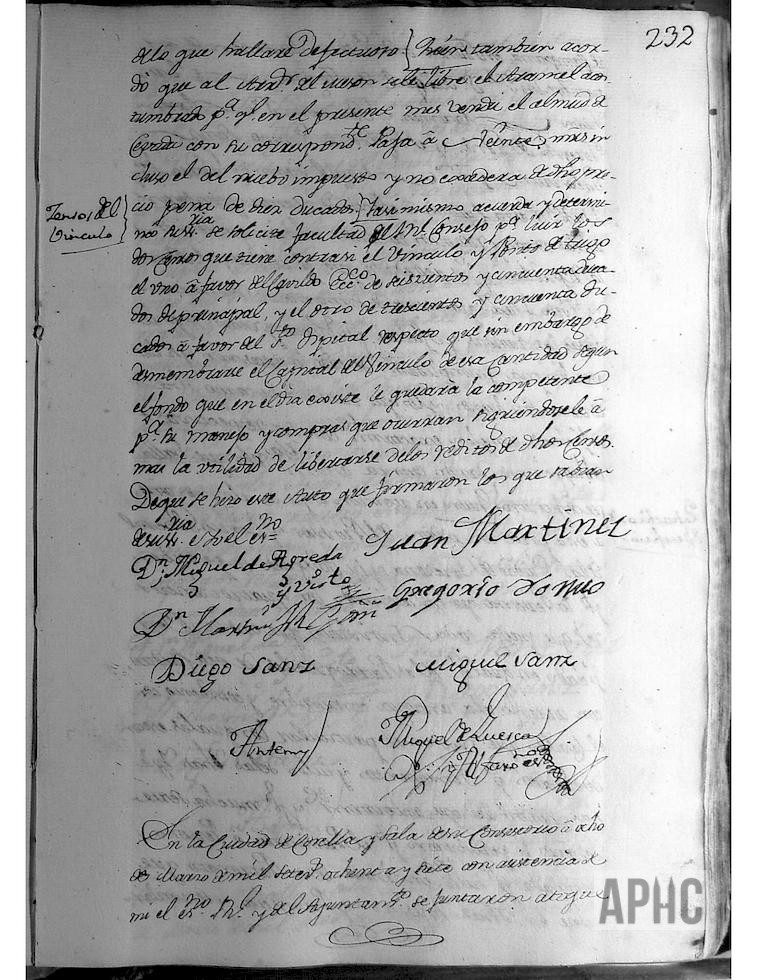 232
de lo que hallare defectuoso} Y bien tambien acor-
dó que al Arrdr. del meson se le libre el Aramel acos
tumbrado pa. qe. en el presente mes venda el almud de
Cevada con su correspondte. Paja á veinte mrs. in
cluso el del nuebo impuesto y no excedera de dho pre-
cio pena de diez ducados
Censos del
Vinculo
Assimismo acuerda y determi-
nó su ssria. se solicite facultad del Rl. Consejo pa. luir los
dos Censos que tiene contra si el Vinculo y Posito de trigo
el uno á favor del Cavildo Ecco. de seiscientos y cincuenta duca
dos de prinzipal, y el otro de trescientos y cincuenta du-
cados á favor del Sto. Ospital respecto que sin embargo de
desmembrarse el Capital del Vinculo de esa Cantidad segun
el fondo que en el dia existe le quedará la competente
pa. su manejo y compras que ocurran siguiendosele á
mas la utilidad de libertarse de los reditos de dhos Censos.
De que se hizo este Auto que firmaron los que sabian
de su ssria. es yo el esno.
Dn. Miguel de Agreda
y Visto
Juan Martinez
Gregorio
Dn. Martin
Diego Sanz
Miguel Sanz
Ante my
Miguel de Luesca
En la Ciudad de Corella y Sala de su Consistorio á ocho
de Marzo de mil seter. ochenta y siete con asistencia de
mi el esno. Rl. y del Ayuntamto. se juntaron a tigue
APHC